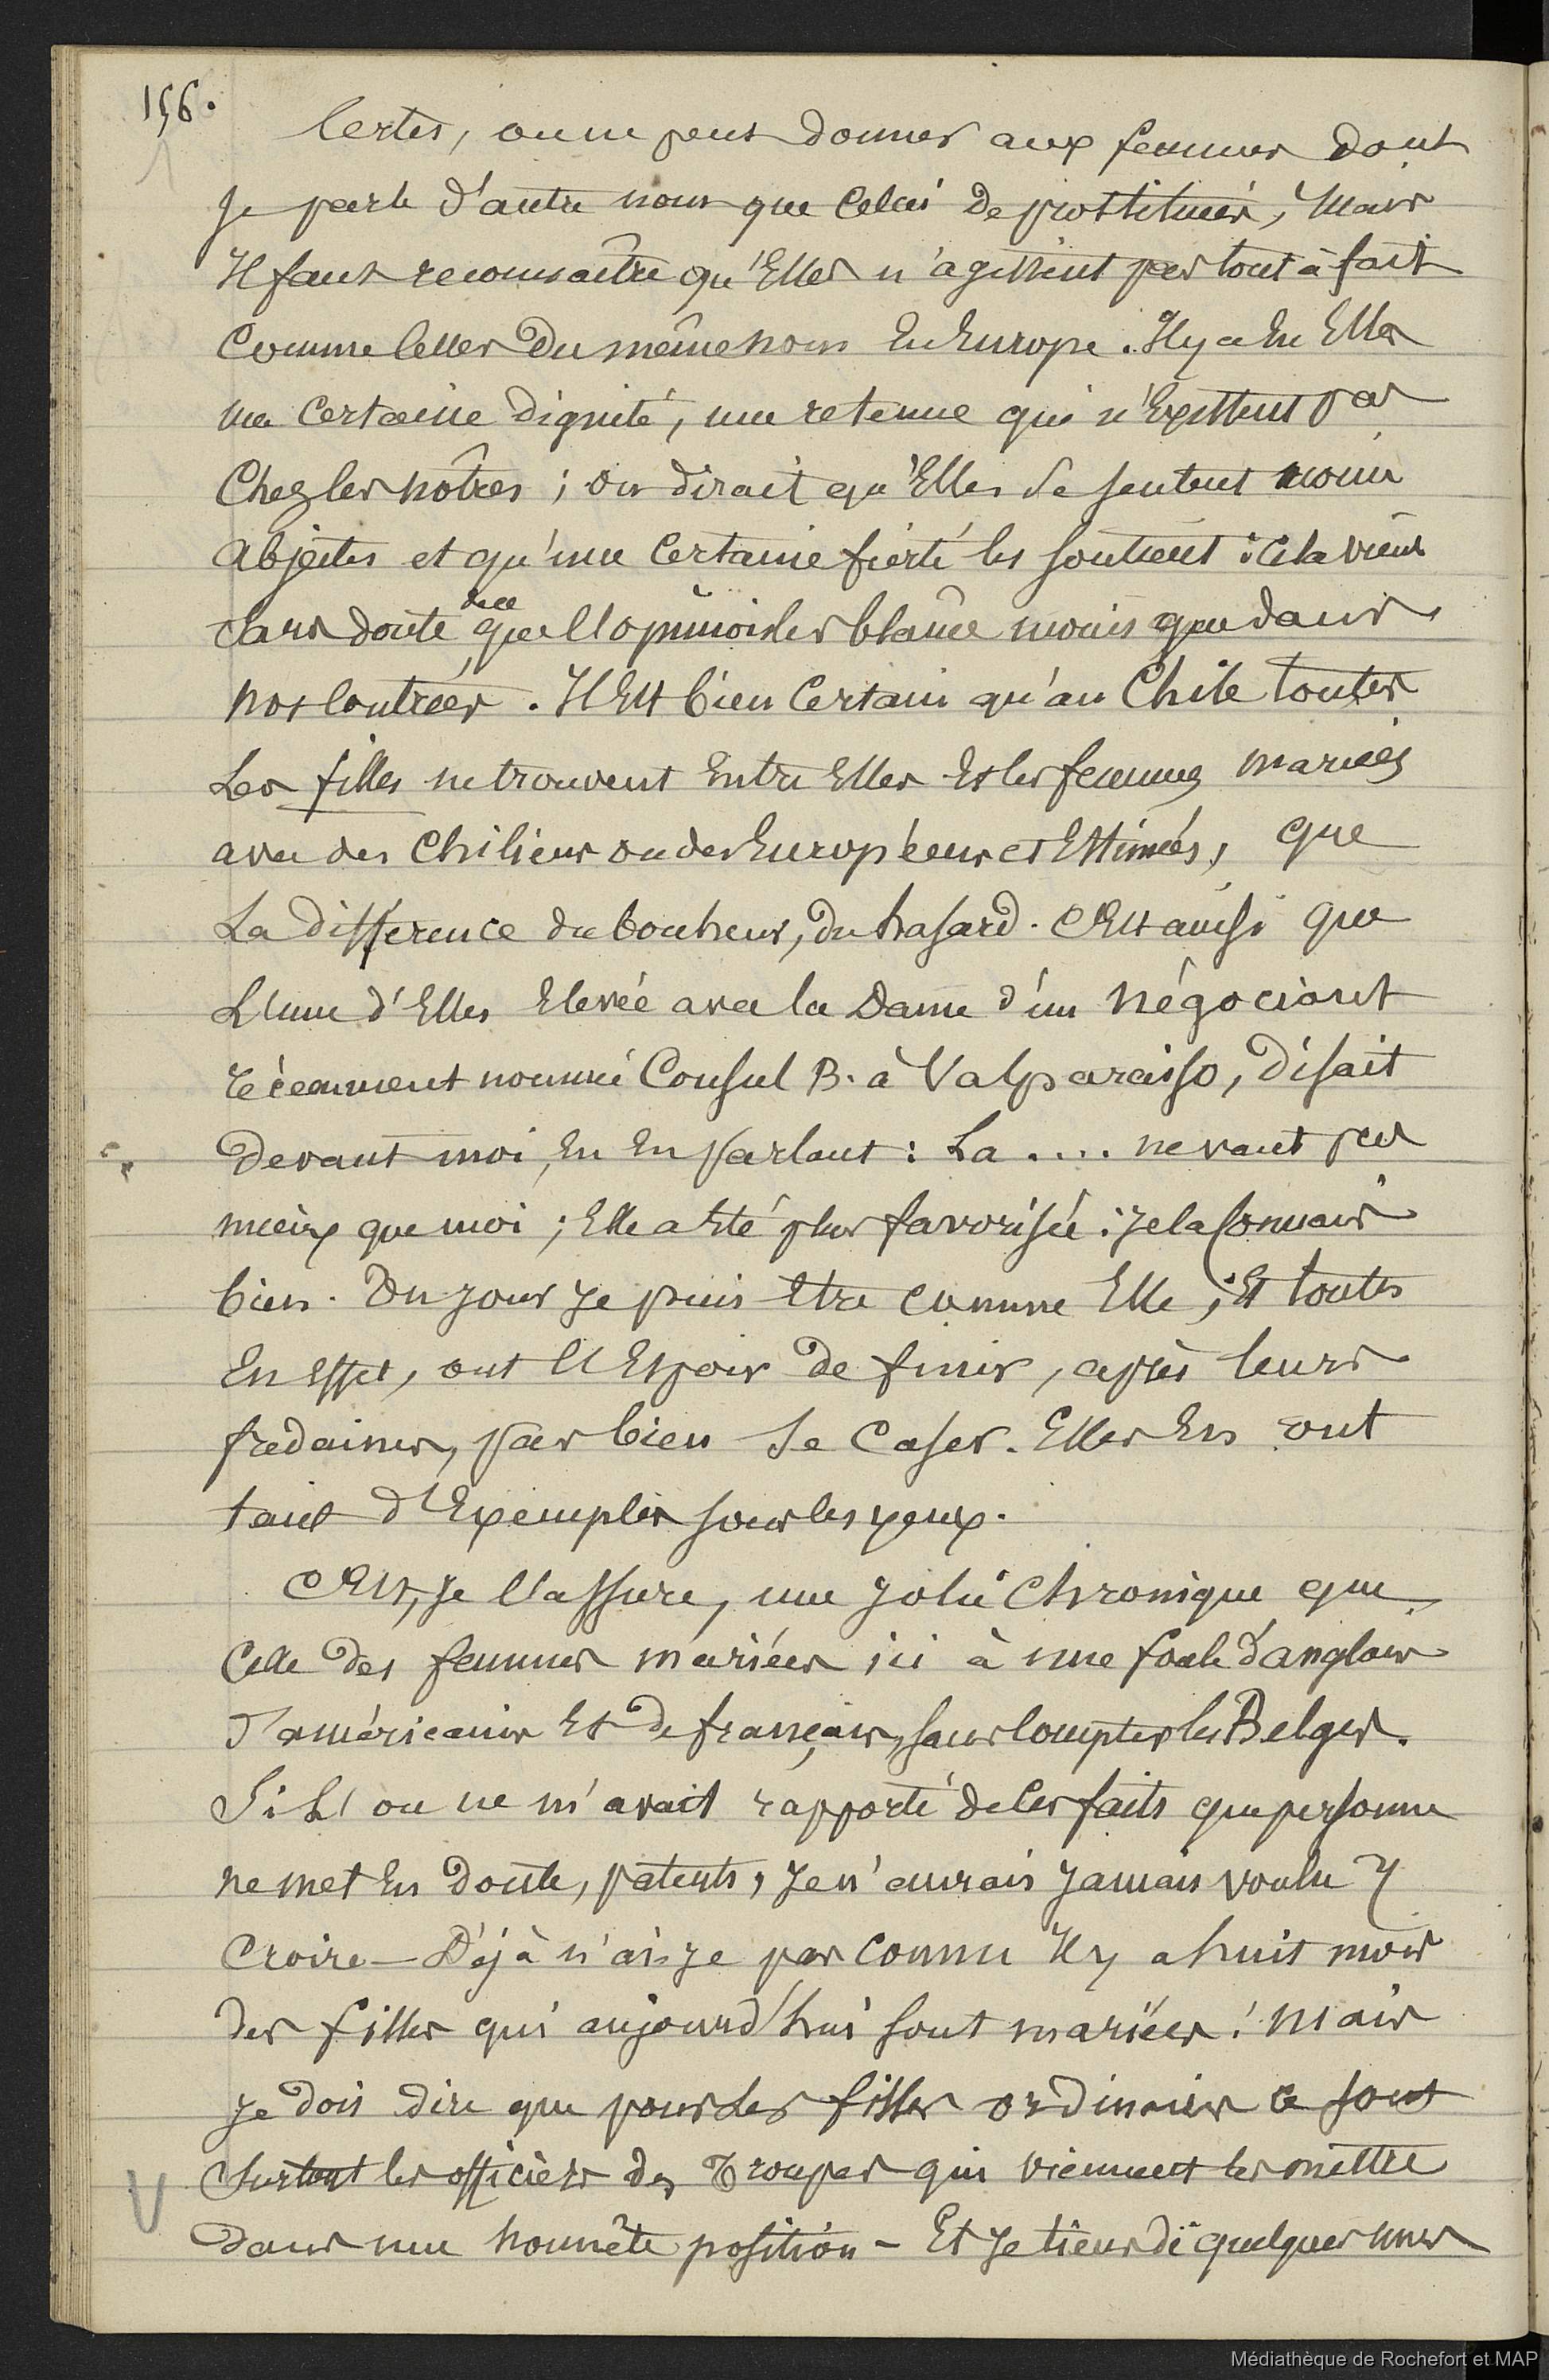 156.
Certes, on ne peut donner aux femmes dont
je parle d'autre nom que celui de prostituées, mais
Il faut reconnaître qu'Elles n'agissent pas tout à fait
Comme celles du même nom En Europe. Il y a En Elles
une certaine dignité, une retenue qui n'Existent pas
Chez les nôtres ; on dirait qu'Elles se sentent moins
abjectes et qu'une certaine fierté les soutient : cela vient
sans doute de ce que l'opinion les blâme moins que dans
nos Contrées. Il Est bien certain qu'au Chili toutes
Les filles ne trouvent Entre Elles Et les femmes mariées
avec des Chiliens ou des Européens et Estimées, que
La différence du bonheur, du hasard. C'Est ainsi que
L'une d'Elles Elevée avec la Dame d'un négociant
récemment nommé Consul B. à Valparaiso, disait
devant moi, En En parlant : La .... ne vaut pas
mieux que moi ; Elle a Eté plus favorisée : je la connais
bien. Un jour je puis Etre comme Elle ; Et toutes
En Effet, ont l'Espoir de finir, après leurs
fredaines, par bien se caser. Elles En ont
tant d'Exemples sous les yeux.
C'Est, je l'assure, une jolie Chronique que
Celle des femmes mariées ici à une foule d'anglais
d'américains Et de français, sans compter les Belges.
Si L'on ne m'avait rapporté de ces faits que personne
ne met En doute, patents, je n'aurais jamais voulu y
Croire — Déjà n'ai-je pas connu Il y a huit mois
des filles qui aujourd'hui sont mariées ! Mais
je dois dire que pour les filles ordinaires ce sont
surtout les officiers des Troupes qui viennent les mettre
dans une honnête position - Et je tiens de quelques unes
Médiathèque de Rochefort et MAP